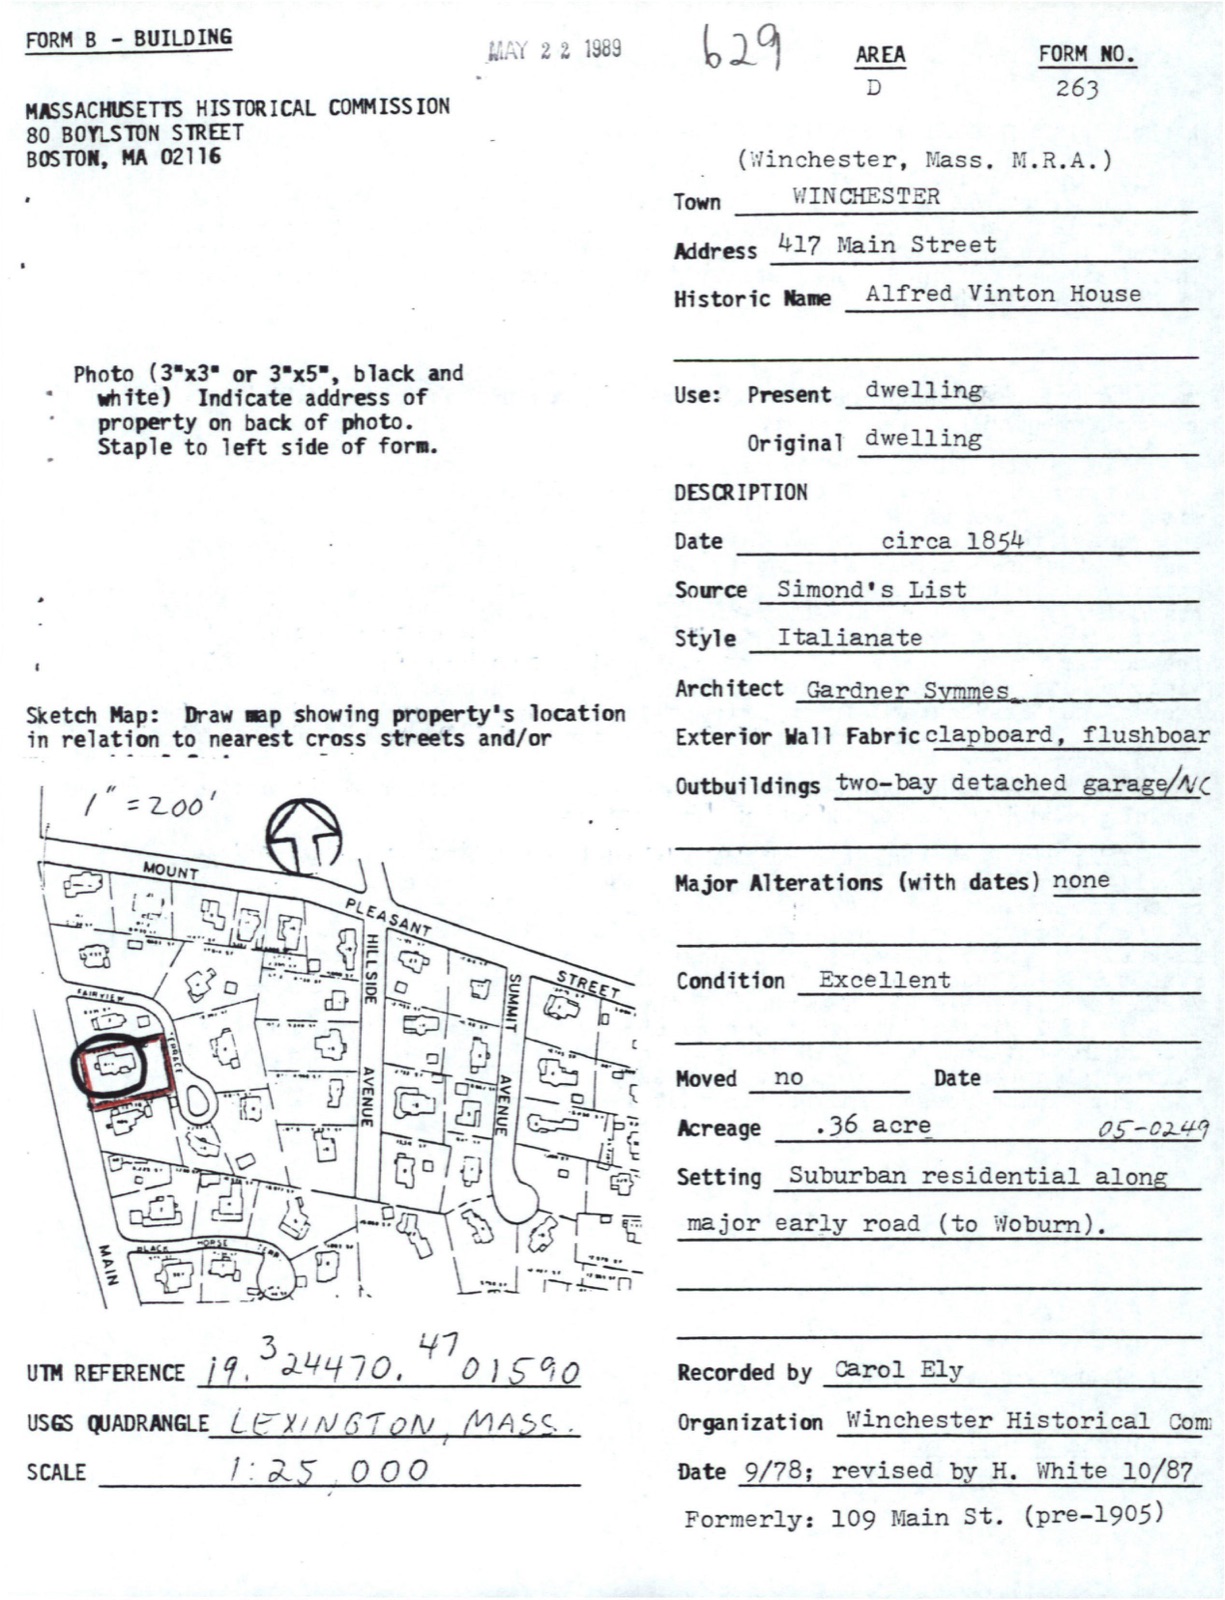 FORM B - BUILDING
MAY 22 1989
629
AREA
D
FORM NO.
263
MASSACHUSETTS HISTORICAL COMMISSION
80 BOYLSTON STREET
BOSTON, MA 02116
(Winchester, Mass. M.R.A.)
Town WINCHESTER
Address 417 Main Street
Historic Name Alfred Vinton House
Photo (3"x3" or 3"x5", black and
white) Indicate address of
property on back of photo.
Staple to left side of form.
Use: Present dwelling
Original dwelling
DESCRIPTION
Date circa 1854
Source Simond's List
Style Italianate
Architect Gardner Symmes
Exterior Wall Fabric clapboard, flushboar
Outbuildings two-bay detached garage/NC
Major Alterations (with dates) none
Condition Excellent
Moved no Date
Acreage .36 acre 05-0249
Setting Suburban residential along
major early road (to Woburn).
Sketch Map: Draw map showing property's location
in relation to nearest cross streets and/or
1" = 200'
MOUNT
PLEASANT
STREET
HILLSIDE
AVENUE
SUMMIT
AVENUE
FAIRVIEW
TERRACE
MAIN
BLACK HORSE TERR.
UTM REFERENCE 19. 324470. 4701590
USGS QUADRANGLE LEXINGTON, MASS.
SCALE 1:25,000
Recorded by Carol Ely
Organization Winchester Historical Com
Date 9/78; revised by H. White 10/87
Formerly: 109 Main St. (pre-1905)